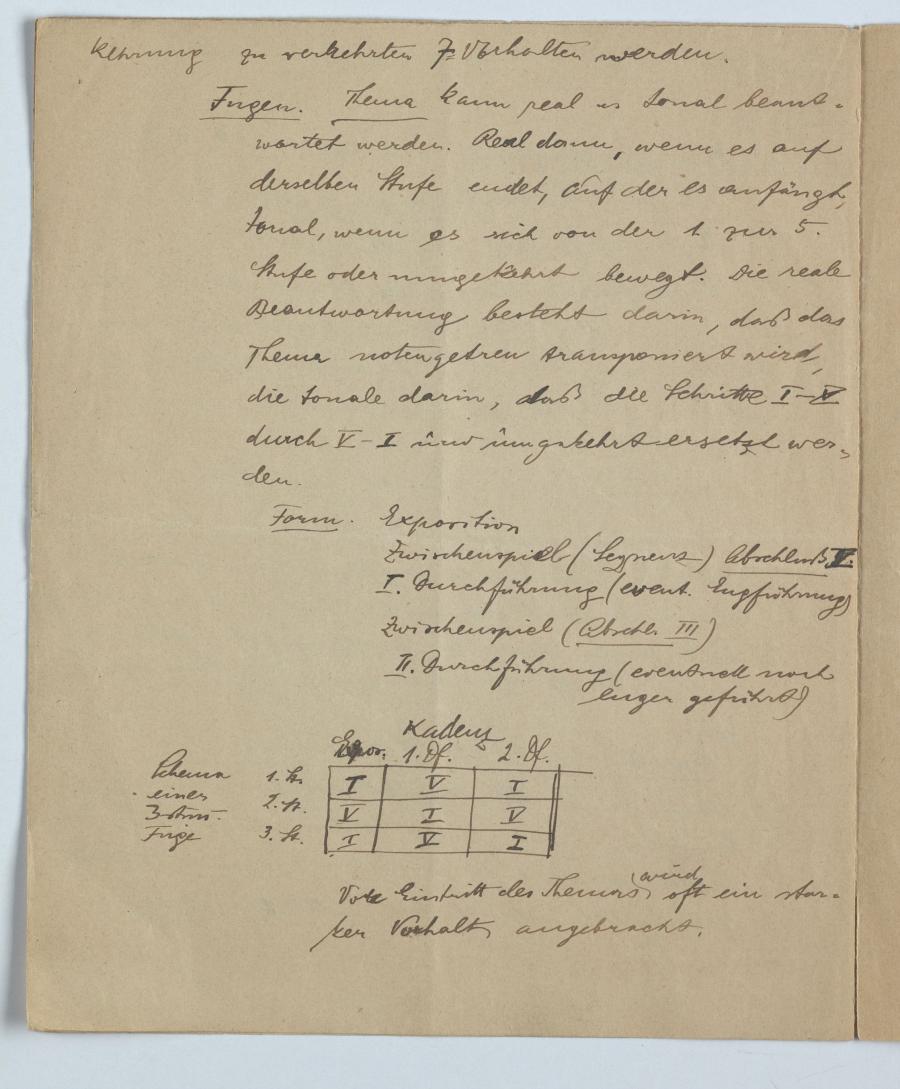 kehrung zu verkehrten 7-Vorhalten werden.
Fugen. Thema kann real u. tonal beant-
wortet werden. Real dann, wenn es auf
derselben Stufe endet, auf der es anfängt,
tonal, wenn es sich von der 1 zur 5.
Stufe oder umgekehrt bewegt. Die reale
Beantwortung besteht darin, daß das
Thema notengetreu transponiert wird,
die tonale darin, daß die Schritte I–V
durch V–I und umgekehrt ersetzt wer-
den.
Form. Exposition
Zwischenspiel (Sequenz) Abschluß V.
I. Durchführung (event. Engführung)
Zwischenspiel (Abschl. III)
II. Durchführung (eventuell noch
enger geführt)
Kadenz
Expos. 1. Df. 2. Df.
Schema 1. St. I V I
einer 2. St. V I V
3-stim.
Fuge 3. St. I V I
wird
Vor Eintritt des Themas oft ein star-
ker Vorhalt angebracht.